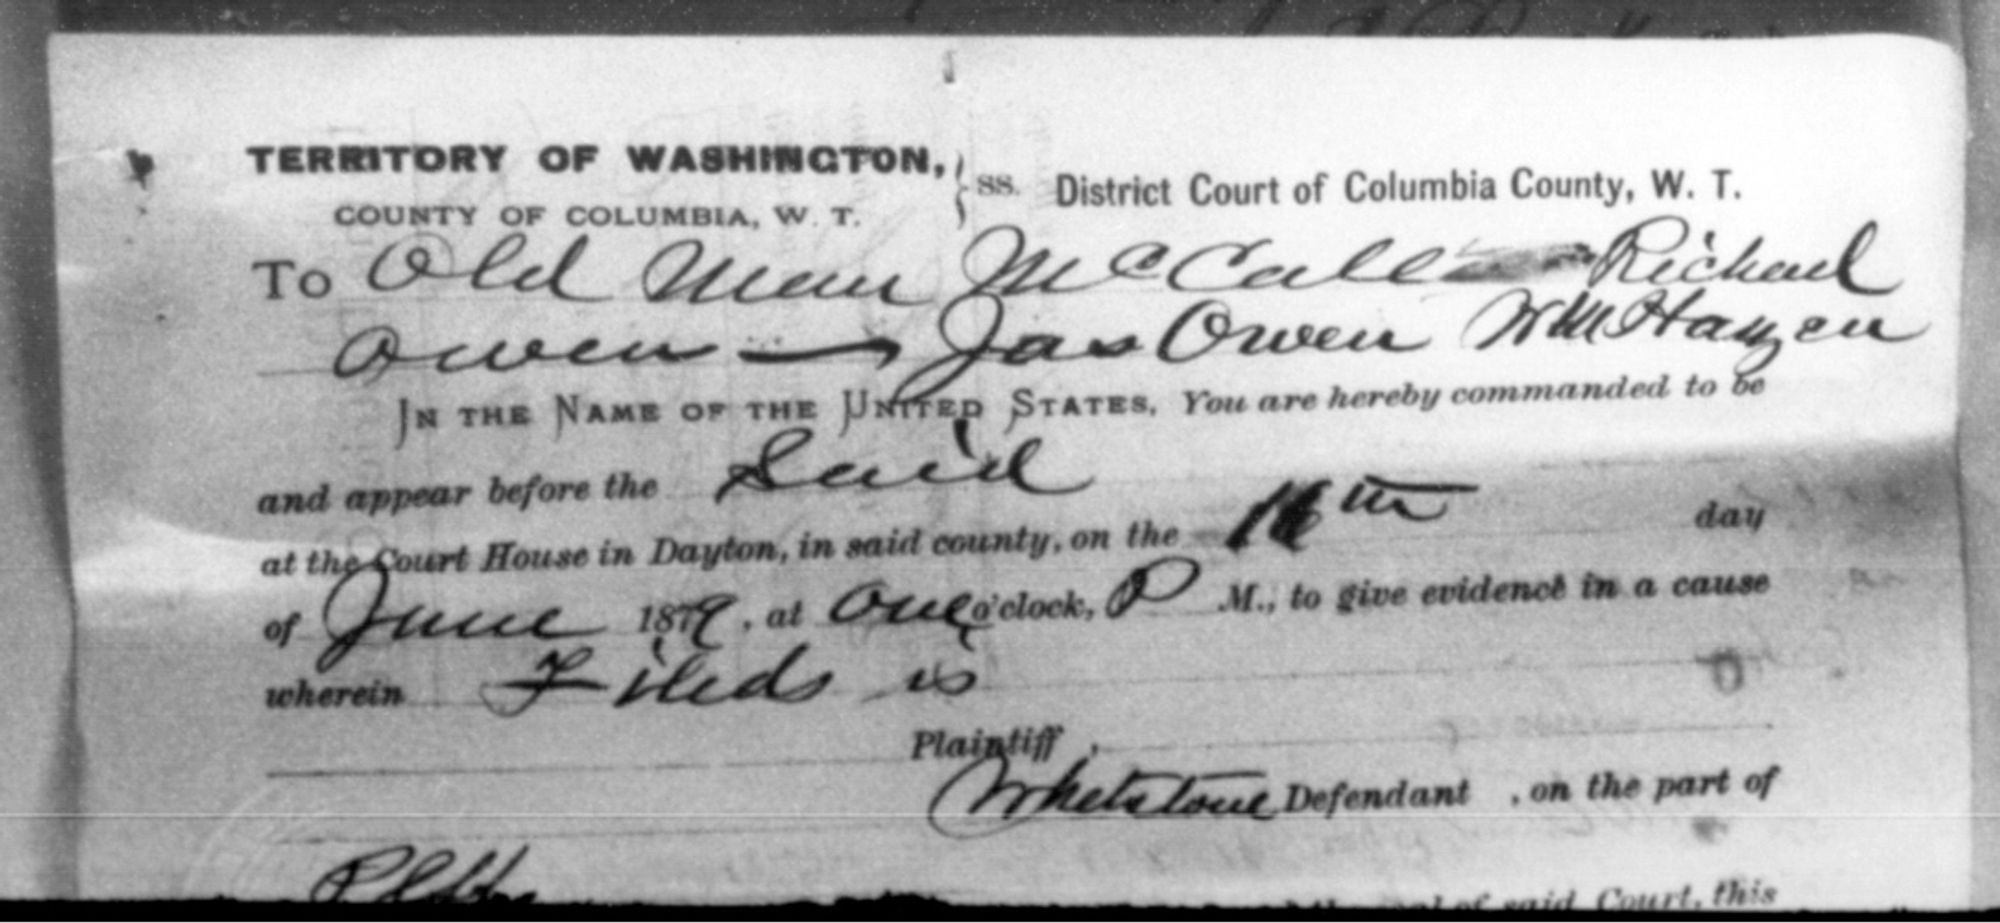 TERRITORY OF WASHINGTON, } ss. District Court of Columbia County, W. T.
COUNTY OF COLUMBIA, W. T.
To Old Man McCall Richard
Owen — Jas Owen Wm Hauzen
IN THE NAME OF THE UNITED STATES, You are hereby commanded to be
and appear before the Said
at the Court House in Dayton, in said county, on the 16th day
of June 1879, at one o'clock, P M., to give evidence in a cause
wherein Fileds is
Plaintiff,
Whetstone Defendant , on the part of
Plff
of said Court, this